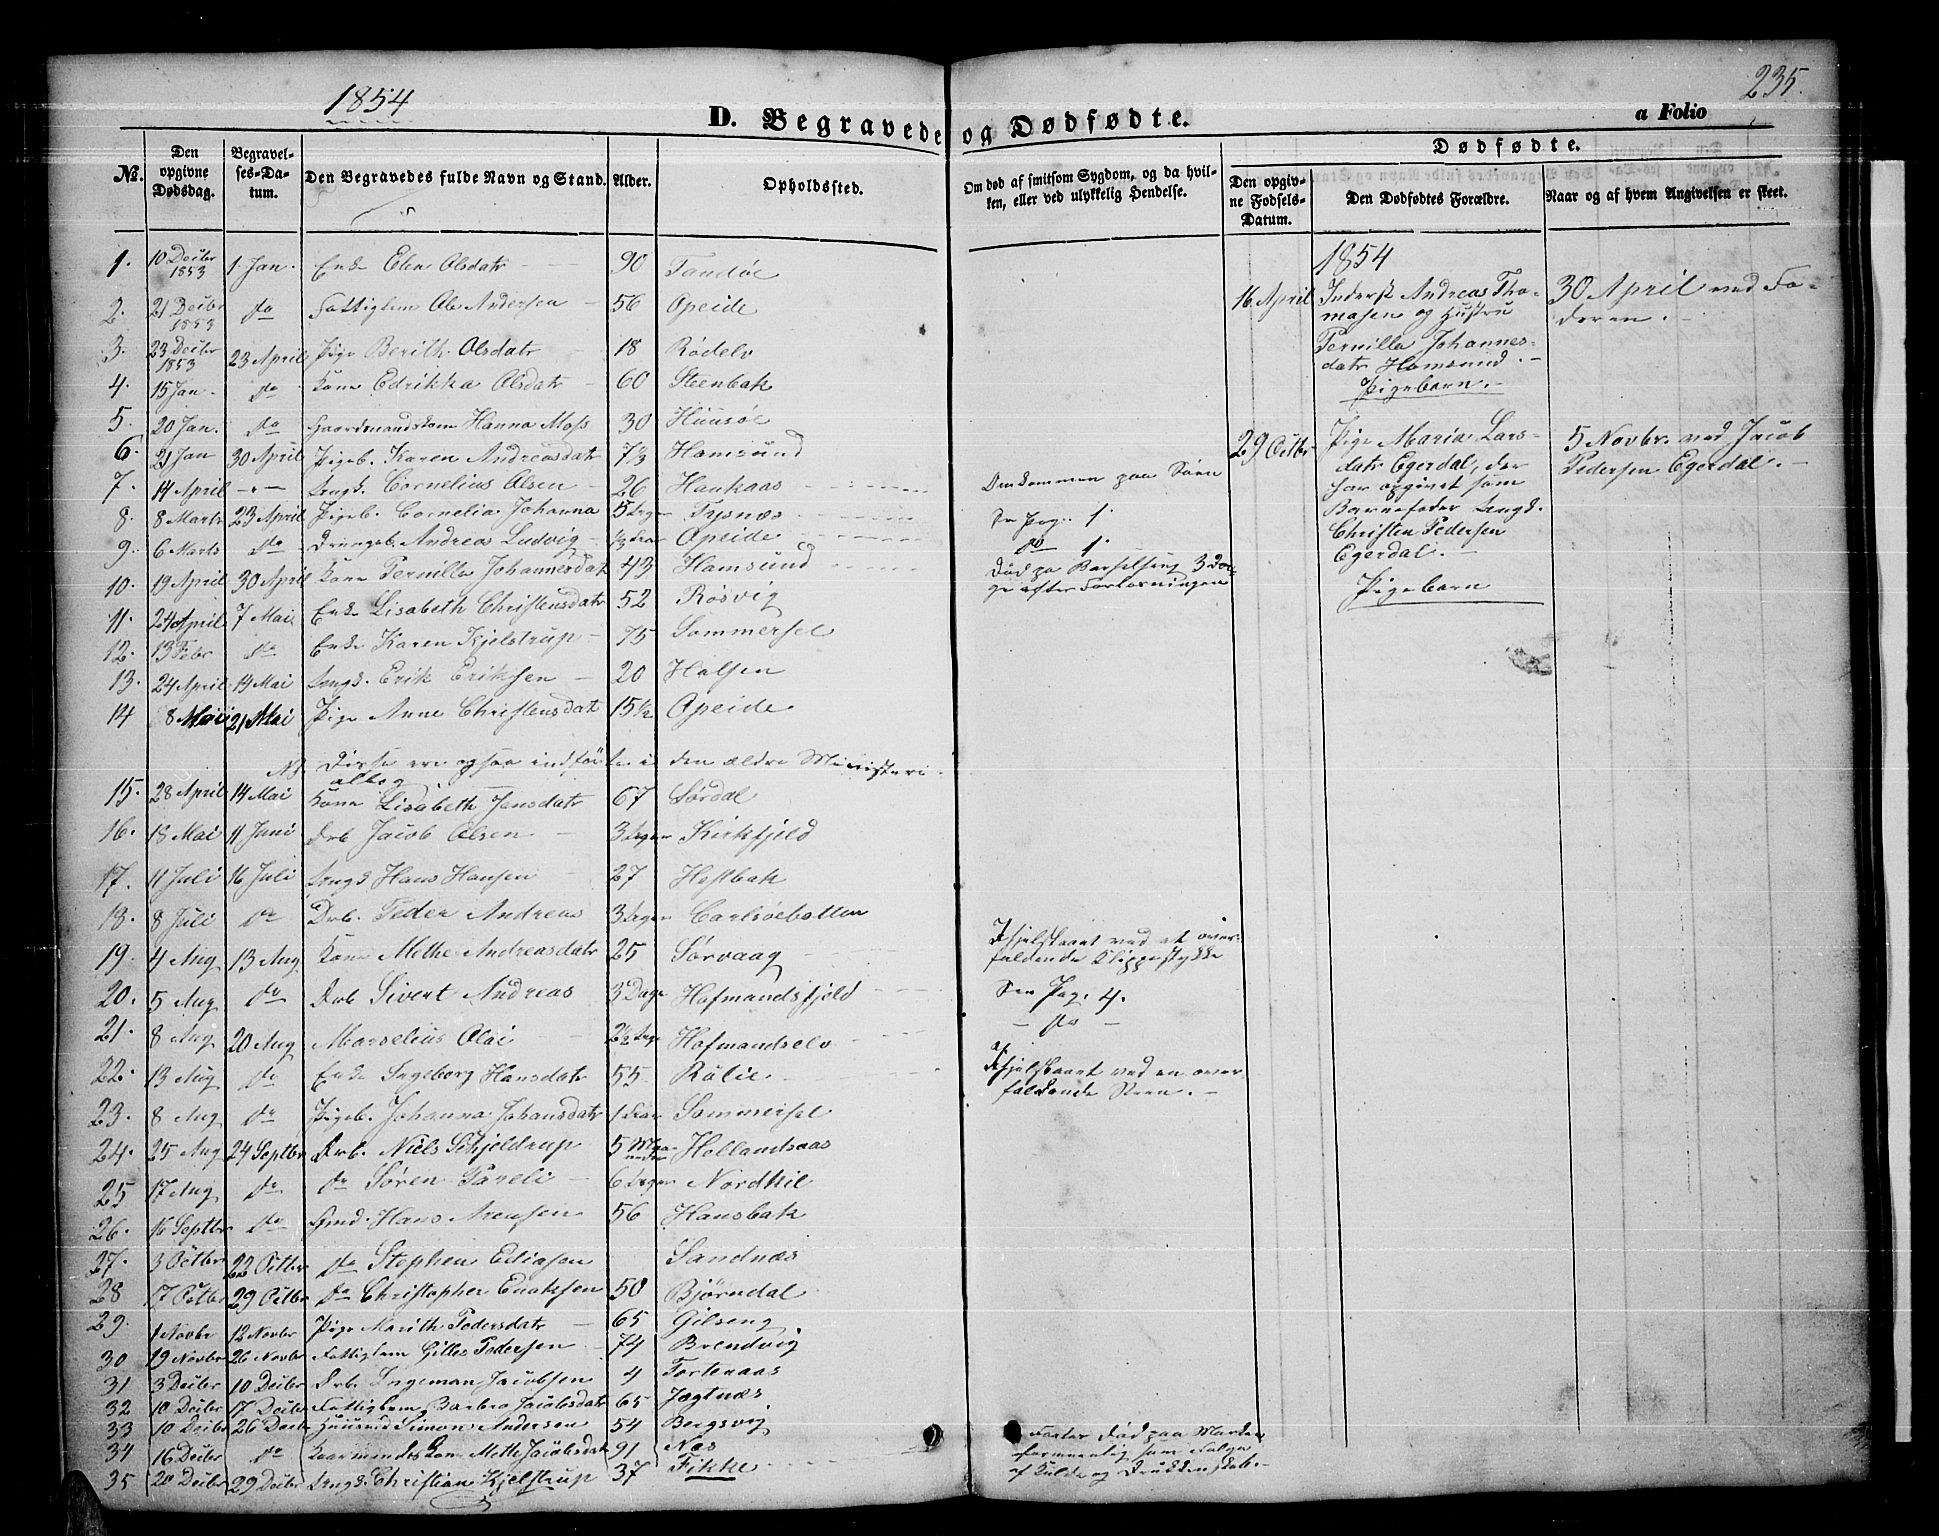 1854
235.
D. Begravede og Dødfødte.
a Folio
No.
Den opgivne Dødsdag.
Begravelses-Datum.
Den Begravedes fulde Navn og Stand.
Alder.
Opholdssted.
Om død af smitsom Sygdom, og da hvilken, eller ved ulykkelig Hendelse.
Dødfødte.
Den opgivne Fødsels-Datum.
Den Dødfødtes Forældre.
Naar og af hvem Angivelsen er skeet.
1. 10 Decbr 1853 1 Jan. Enke Elen Olsdatr 90 Tandøe
2. 21 Decbr 1853 do Fattiglem Ole Andersen 56 Opeide
3. 23 Decbr 1853 23 April Pige Berith Olsdatr 18 Rödelv
4. 15 Jan. do Kone Edrikka Olsdatr 60 Steenbak
5. 20 Jan. do Gaardmandskone Hanna Moss 30 Huusøe
6. 21 Jan 30 April Pigeb. Karen Andreasdatr 7½ Hamsund
7. 14 April Ungk. Cornelius Olsen 26 Haukaas Omkommen paa Søen
8. 8 Marts 23 April Pigeb. Cornelia Johanna 5 Dage Tysnæs See Pag. 1.
9. 6 Marts do Drengeb. Andreas Ludvig Opeide do 1.
10. 19 April 30 April Kone Pernilla Johannesdatr 43 Hamsund Død pa Barselseng 3 Dage efter Forløsningen
11. 24 April 7 Mai Enke Lisabeth Christensdatr 52 Røsvig
12. 13 Febr do Enke Karen Kjelstrup 75 Sommersel
13. 24 April 14 Mai Ungk. Erik Eriksen 20 Holsen
14 8 Mai 21 Mai Pige Anne Christensdatr 15½ Opeide
NB. Disse ere ogsaa indførte i den ældre Ministeri-
albog
15. 28 April 14 Mai Kone Lisabeth Jensdatr 67 Sørdal
16. 18 Mai 11 Juni Drb Jacob Olsen 3 Dage Kirkfjeld
17. 11 Juli 16 Juli Ungk Hans Hansen 27 Hestbak
18. 8 Juli do Drb. Peder Andreas 3 Dage Carlsøebotten
19. 4 Aug 13 Aug Kone Methe Andreasdatr 25 Sørvaag Ihjelslaaet ved et over-
faldende Klippestykke
20. 5 Aug do Drb Sivert Andreas 3 Dage Hofmandsfjeld See Pag. 4.
21. 8 Aug 20 Aug Marselius Olai 2½ Hofmandselv - do -
22. 13 Aug do Enke Ingeborg Hansdatr 55 Rølie Ihjelslaaet ved en over-
faldende Steen.
23. 8 Aug do Pigeb. Johanna Johansdatr 1 Sommersel
24. 25 Aug 24 Septbr Drb. Niels Schjeldrup 5 Maaneder Hollandsaas
25 17 Aug do do Søren Pareli 6 Dage Nordkil
26. 16 Septbr do Hans Arensen 56 Hansbak
27. 3 Octbr 22 Octbr do Stephen Ediasen Sandnæs
28 17 Octbr 29 Octbr do Christopher Enoksen 50 Bjørndal
29. 1 Novbr 12 Novbr Pige Marith Pedersdatr 65 Gilseng
30 19 Novbr 26 Novbr Fattiglem Gilles Pedersen 74 Brendvig
31 3 Decbr 10 Decbr Drb. Ingeman Jacobsen 4 Fortenaas
32 10 Decbr 17 Decbr Fattiglem Barbro Jacobsdatr 65 Jagtnæs
33 10 Decbr 26 Decbr Huusmd Simon Andersen 54 Bogsvig Funden Død paa Marken
formeentlig som Følge
af Kulde og Drukkenskab.
34 16 Decbr do Kaarmandskone Methe Jacobsdatr 91 Næs
35 20 Decbr 29 Decbr Ungk. Christian Kjelstrup 37 Fikke
1854
16 April Inderst Andreas Tho-
masen og Hustru
Pernilla Johannes-
datr Hamsund.
Pigebarn.
30 April ved Fa-
deren.
29 Octbr Pige Maria Lars-
datr Egerdal, der
har opgivet som
Barnefader Ungk.
Christen Pedersen
Egerdal.
Pigebarn
5 Novbr. ved Jacob
Pedersen Egerdal.